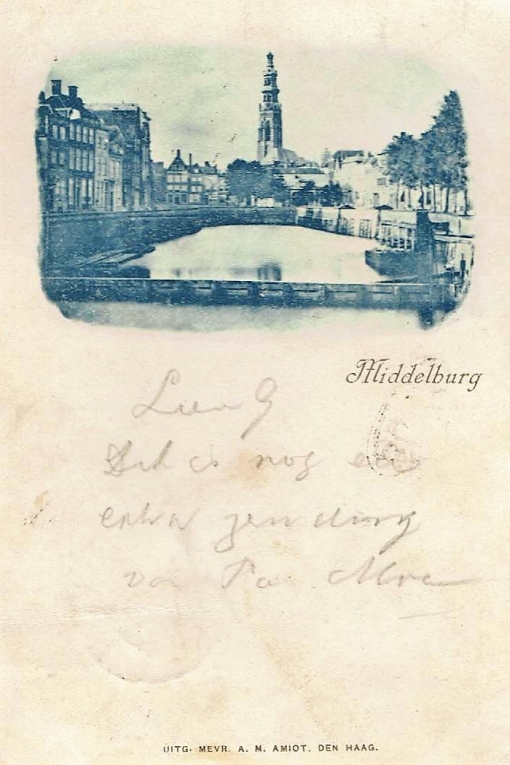 Middelburg
Dit is nog een
extra zending
van Pa.
UITG. MEVR. A. M. AMIOT. DEN HAAG.